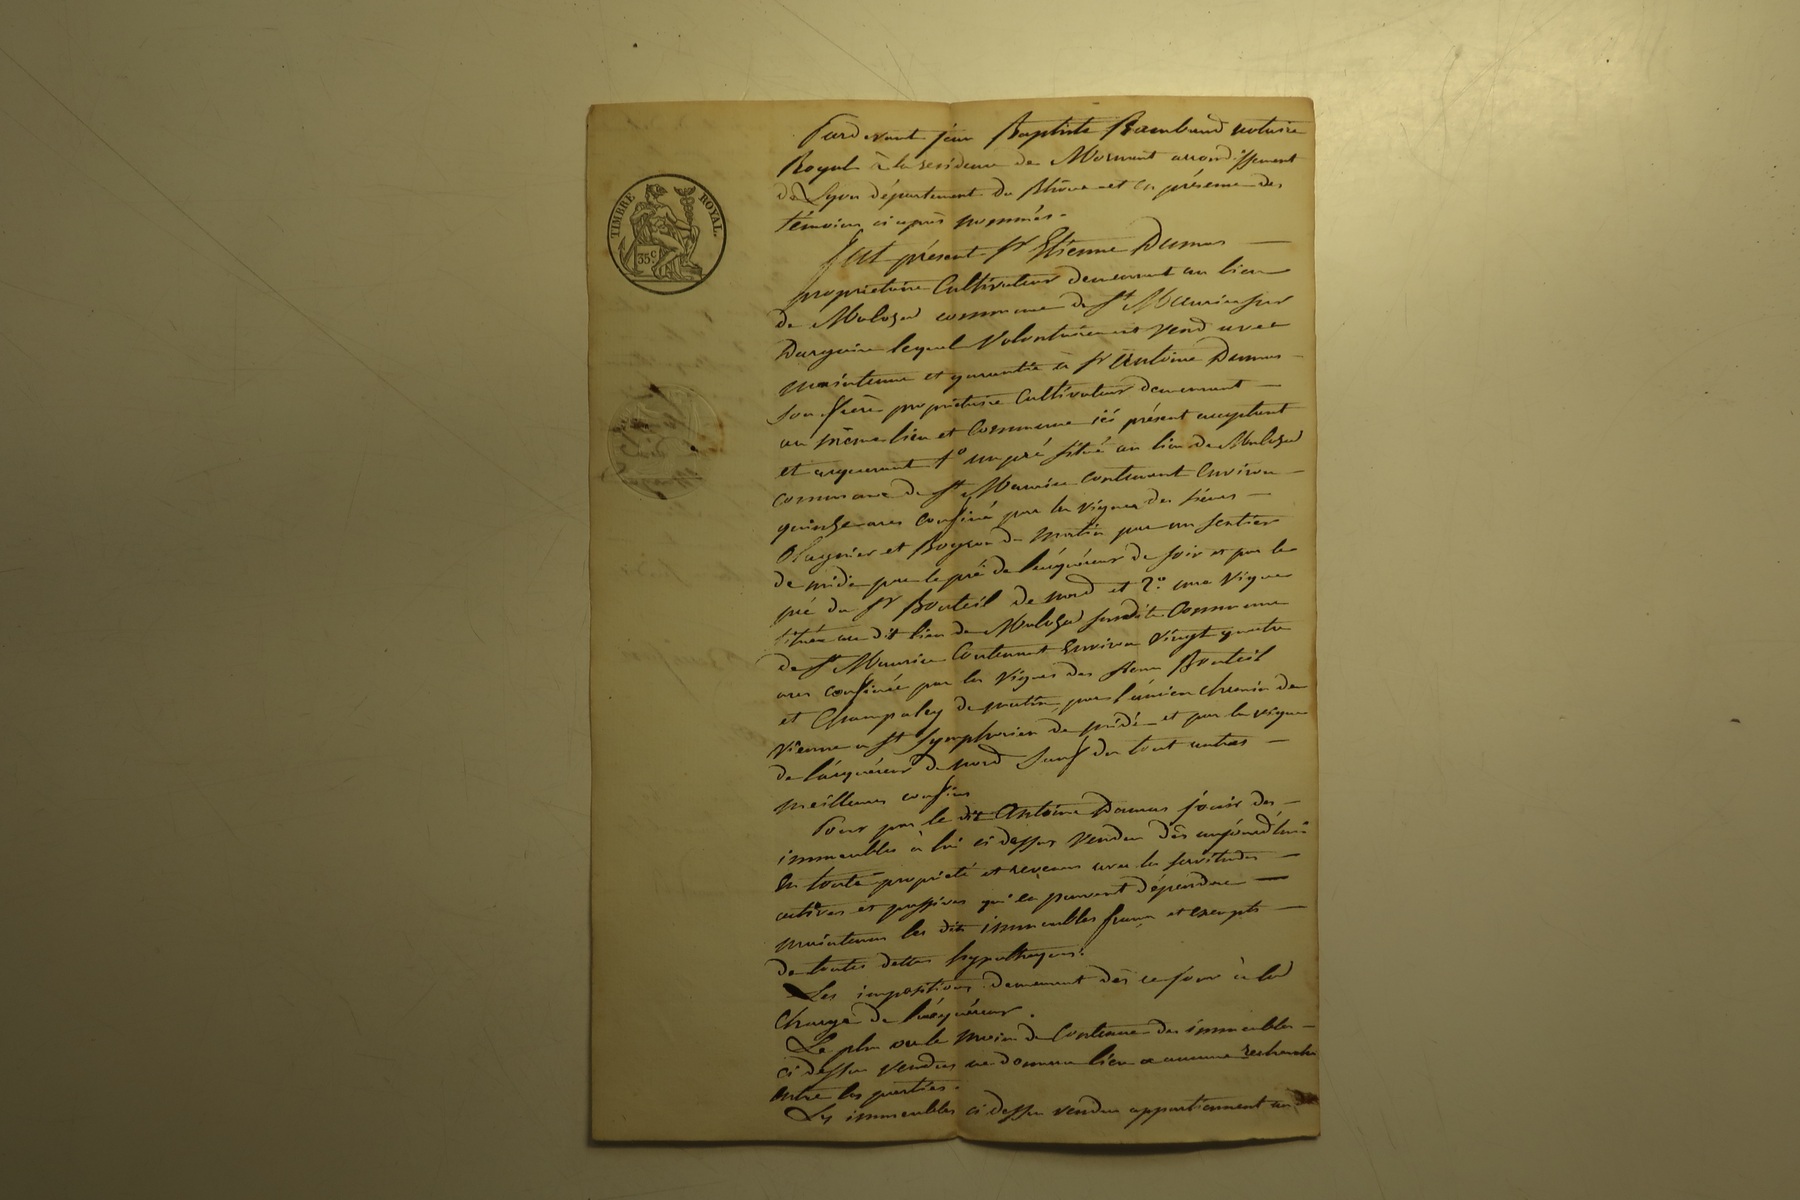 TIMBRE ROYAL.
35c
Pardevant jean Baptiste Rambaud notaire
Royal à la residence de Mornant arrondissement
de Lyon département du Rhône et en présence des
témoins ci après nommés.
fut présent sr Etienne Dumas
propriétaire Cultivateur demeurant au lieu
de commune de St Maurice sur
Dargoire lequel volontairement vend avec
maintenue et garantie à sr Antoine Dumas
son frère propriétaire Cultivateur demeurant
au même lieu et Commune ici présent acceptant
et acquerant 1o un pré situé au lieu de
commune de St Maurice contenant Environ
quinze ares confiné par les vignes des sieurs
et de matin par un sentier
de midi par le pré de l'acquéreur de soir et par le
pré du sr Bouteil de nord et 2o une Vigne
située au dit lieu de susdite Commune
de St Maurice Contenant Environ Vingt quatre
ares confinée par les Vignes des sieurs Bouteil
et de matin, par l'ancien chemin de
Vienne a St Symphorien de midi et par la vigne
de l'acquéreur de nord sauf de tout autres
meilleurs confins
Pour par le dit Antoine Dumas jouir des
immeubles à lui ci dessus Vendus dès aujourd'hui
En toute propriété et revenus avec les servitudes
actives et passives qui en peuvent dépendre
maintenus les dits immeubles francs et exempts
de toutes dettes hypothèques.
Les impositions demeurent dès ce jour à la
Charge de l'acquéreur.
Le plus ou le moins de Contenue des immeubles
ci dessus Vendus ne donnera lieu a aucune recherche
Entre les parties.
Les immeubles ci dessus vendus appartiennent au